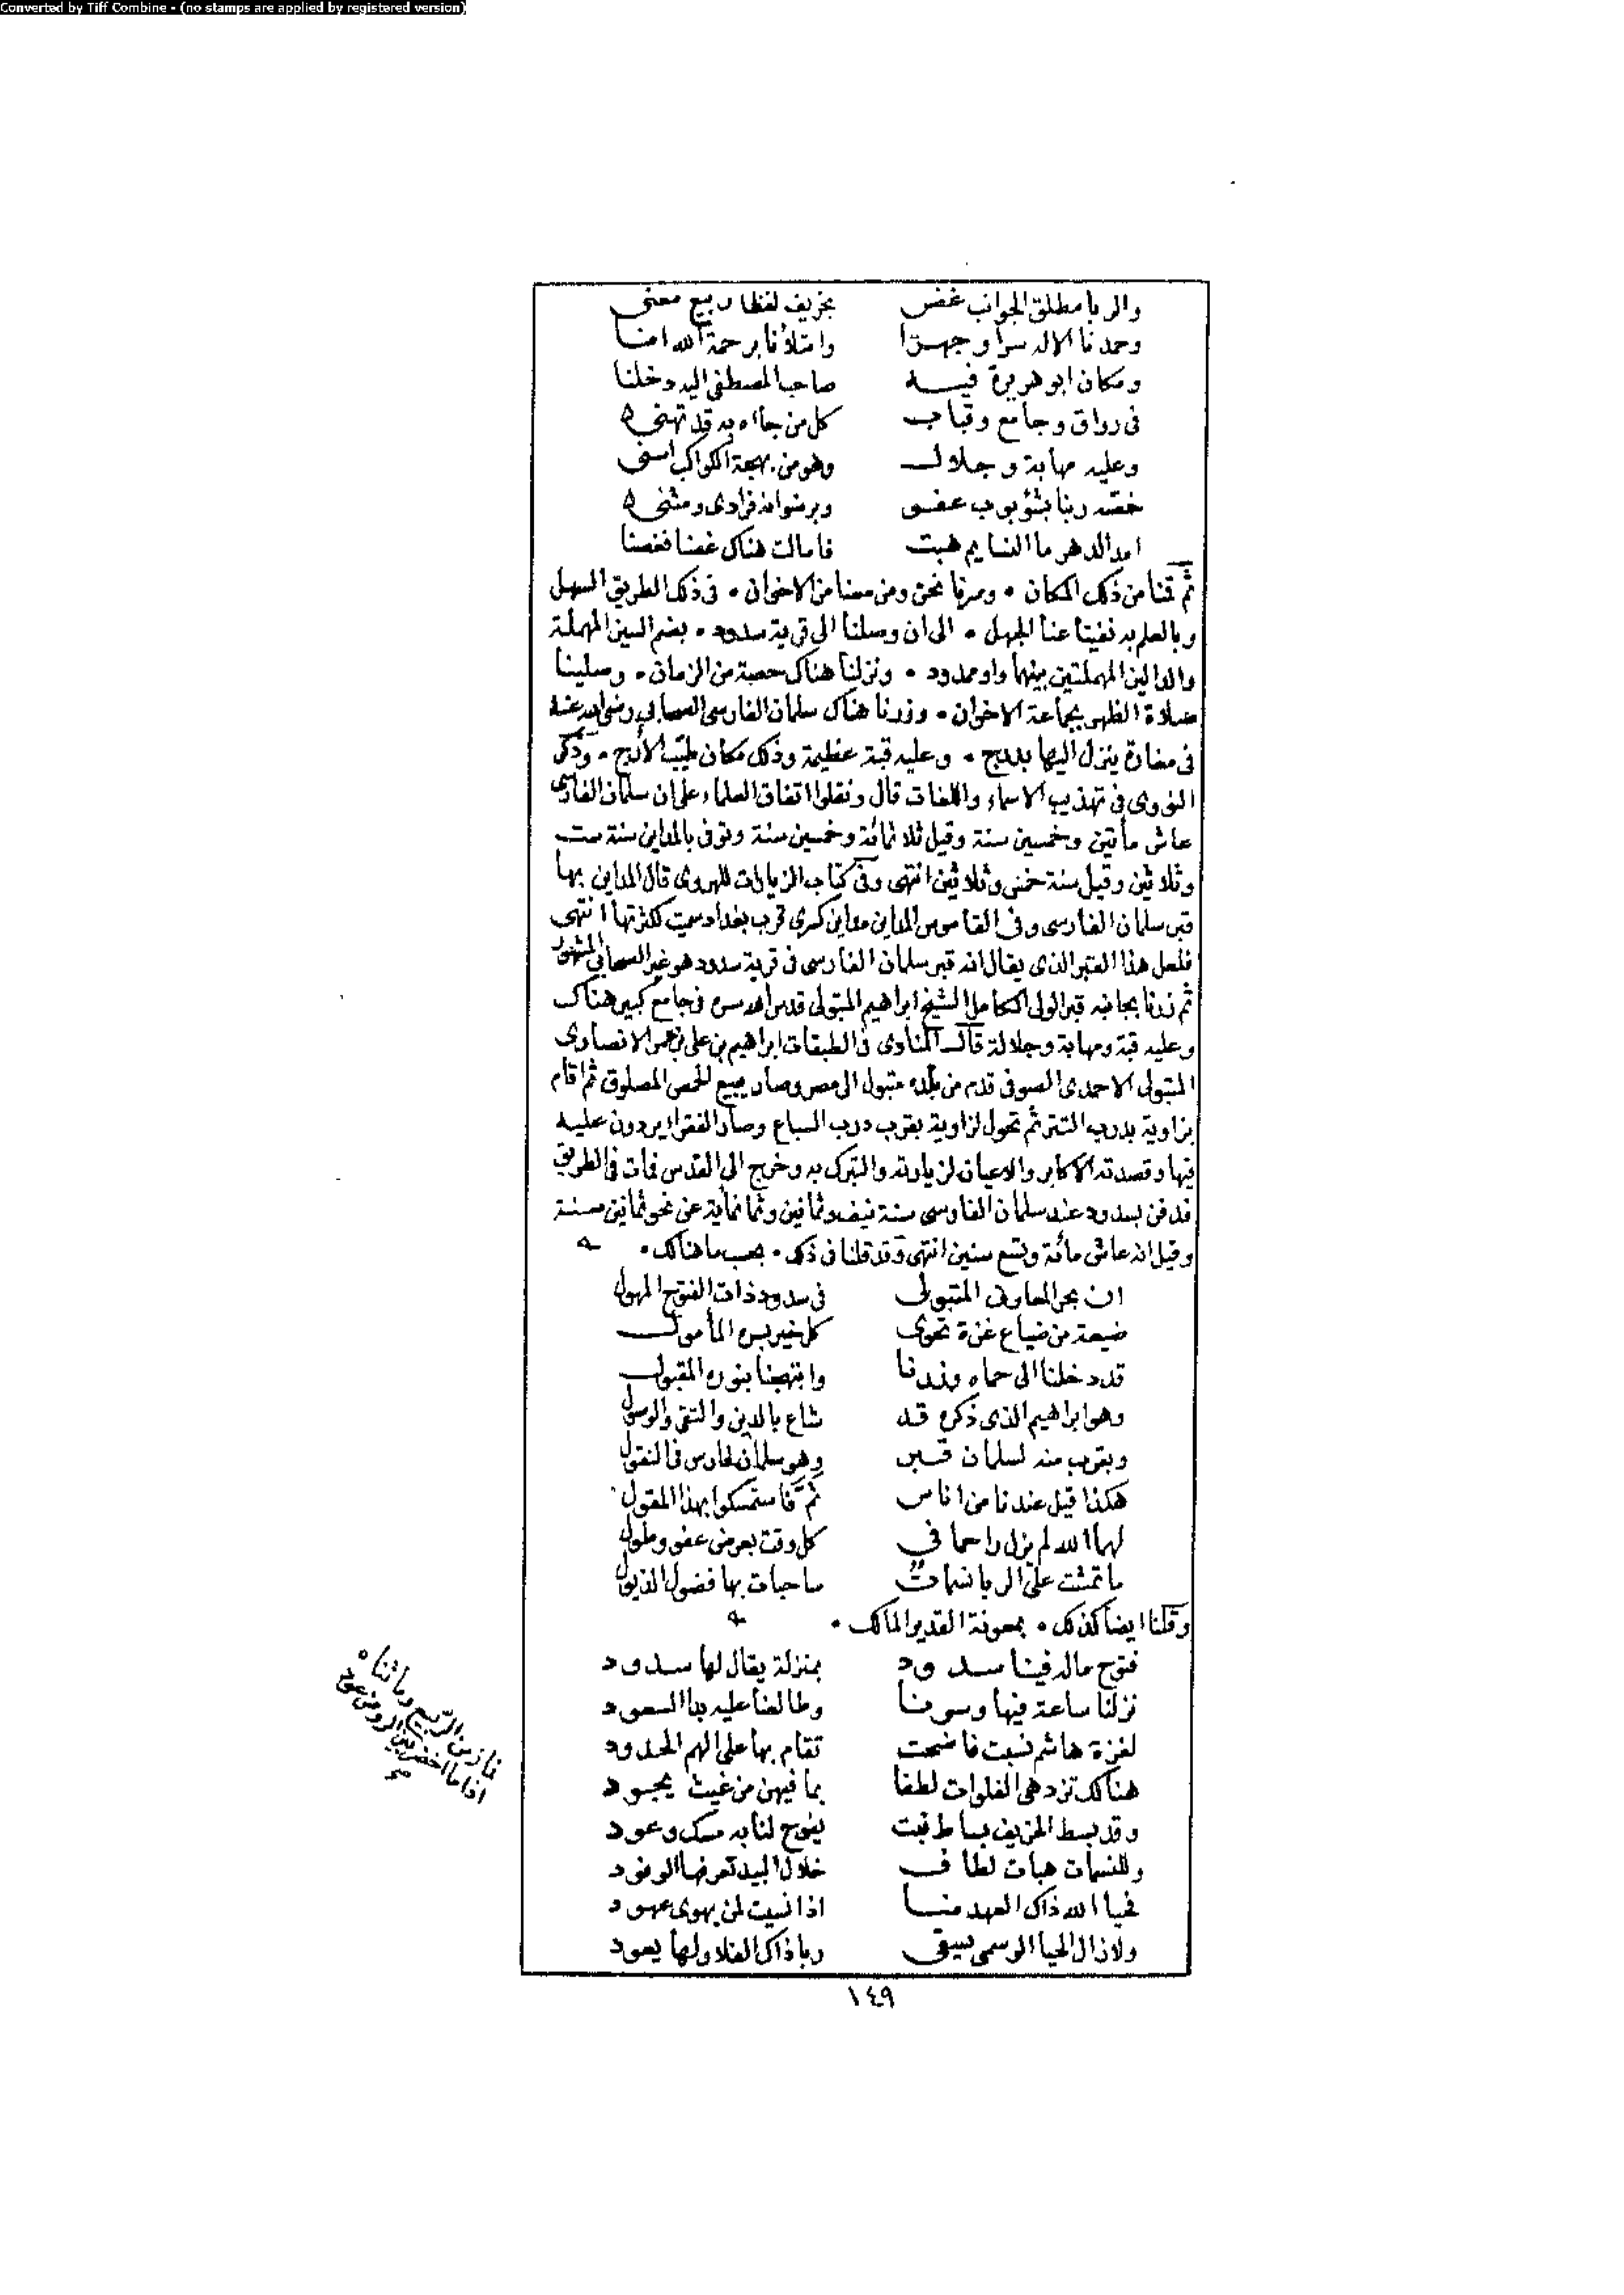 Converted by Tiff Combine - (no stamps are applied by registered version)
والربا مطلق الجوانب غض بخريف لفظا ربيع معنى
وحمدنا الاله سرا وجهرا وامتلأنا برحمة الله امنا
ومكان ابو هريرة فيه صاحب المصطفى اليه دخلنا
فى رواق وجامع وقباب كل من جاءه به قد تهنى
وعليه مهابة وجلال وهو من بهجة الكواكب اسنى
خصه ربنا بشؤبوب عفو وبرضوانه فرادى ومثنى
امد الدهر ما النسايم هبت فامالت هناك غصنا فغصنا
ثم قمنا من ذلك المكان • وسرنا نحن ومن معنا من الاخوان • فى ذلك الطريق السهل
وبالعلم به نفينا عنا الجهل • الى ان وصلنا الى قرية سدود • بضم السين المهملة
والدالين المهملتين بينهما واو ممدود • ونزلنا هناك حصة من الزمان • وصلينا
صلاة الظهر بجماعة الاخوان • وزرنا هناك سلمان الفارسى الصحابى رضى الله عنه
فى مغارة ينزل اليها بدرج • وعليه قبة عظيمة وذلك مكان طيب الأرج • وذكر
النووى فى تهذيب الاسماء واللغات قال ونقلوا اتفاق العلماء على ان سلمان الفارسى
عاش مأتين وخمسين سنة وقيل ثلاثمائة وخمسين سنة وتوفى بالمداين سنة ست
وثلاثين وقيل سنة خمس وثلاثين انتهى وفى كتاب الزيارات للهروى قال المداين بها
قبر سلمان الفارسى وفى القاموس المداين مداين كسرى قرب بغداد سميت لكثرتها انتهى
فلعل هذا القبر الذى يقال انه قبر سلمان الفارسى فى قرية سدود هو غير الصحابى المشهور
ثم زرنا بجانبه قبر الولى الكامل الشيخ ابراهيم المتبولى قدس الله سره فى جامع كبير هناك
وعليه قبة ومهابة وجلالة قال المناوى فى الطبقات ابراهيم بن على بن عمر الانصارى
المتبولى الاحمدى الصوفى قدم من بلده متبول الى مصر وصار يبيع الحمص المصلوق ثم اقام
بزاوية بدرب التتر ثم تحول لزاوية بقرب درب السباع وصار الفقراء يردون عليه
فيها وقصدته الاكابر والاعيان لزيارته والتبرك به وخرج الى القدس فمات فى الطريق
فدفن بسدود عند سلمان الفارسى سنة نيف وثمانين وثمانماية عن نحو ثمانين سنة
وقيل انه عاش مائة وتسع سنين انتهى وقد قلنا فى ذلك • بحسب ما هنالك •
ان بحر المعارف المتبولى فى سدود ذات الفتوح المهول
ضيعة من ضياع غزة تحوى كل خير بسره المأمول
قد دخلنا الى حماه وزرنا وابتهجنا بنوره المقبول
وهو ابراهيم الذى ذكره قد شاع بالدين والتقى والوصول
وبقرب منه لسلمان قبر وهو سلمان فارس فى النقول
هكذا قيل عندنا من اناس ثم فاستمسكوا بهذا المقول
لهما الله لم يزل راحما فى كل وقت بعرض عفو وطول
ما تمشت على الربا نسمات ساحبات بها فضول الذيول
وقلنا ايضا كذلك • بمعونة القدير المالك •
فتوح ماله فينا سدود بمنزلة يقال لها سدود
نزلنا ساعة فيها وسرنا وطالعنا عليه بدا السعود
لغزة هاشم نسبت فاضحت تقام بها على الهم الحدود
هنالك تزدهى الفلوات لطفا بما فيهن من غيث يجود
وقد بسط الخريف بساط نبت يفوح لنا به مسك وعود
وللنسمات هبات لطاف خلال البيد تعرفها الوفود
فحيا الله ذاك العهد منا اذا نسيت لمن يهوى عهود
ولا زال الحيا الوسمى يسقى ربا ذاك الفلا ولها يعود
فما زمن الربيع وما ثناه
اذا ما اخضر بين الروض عود
١٤٩